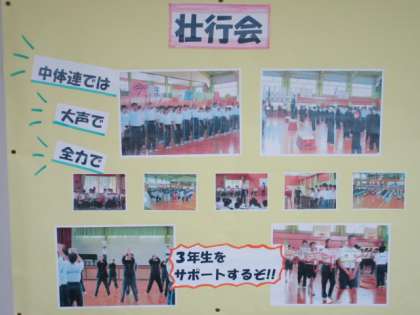 壮行会
中体連では
大声で
全力で
3年生を
サポートするぞ!!